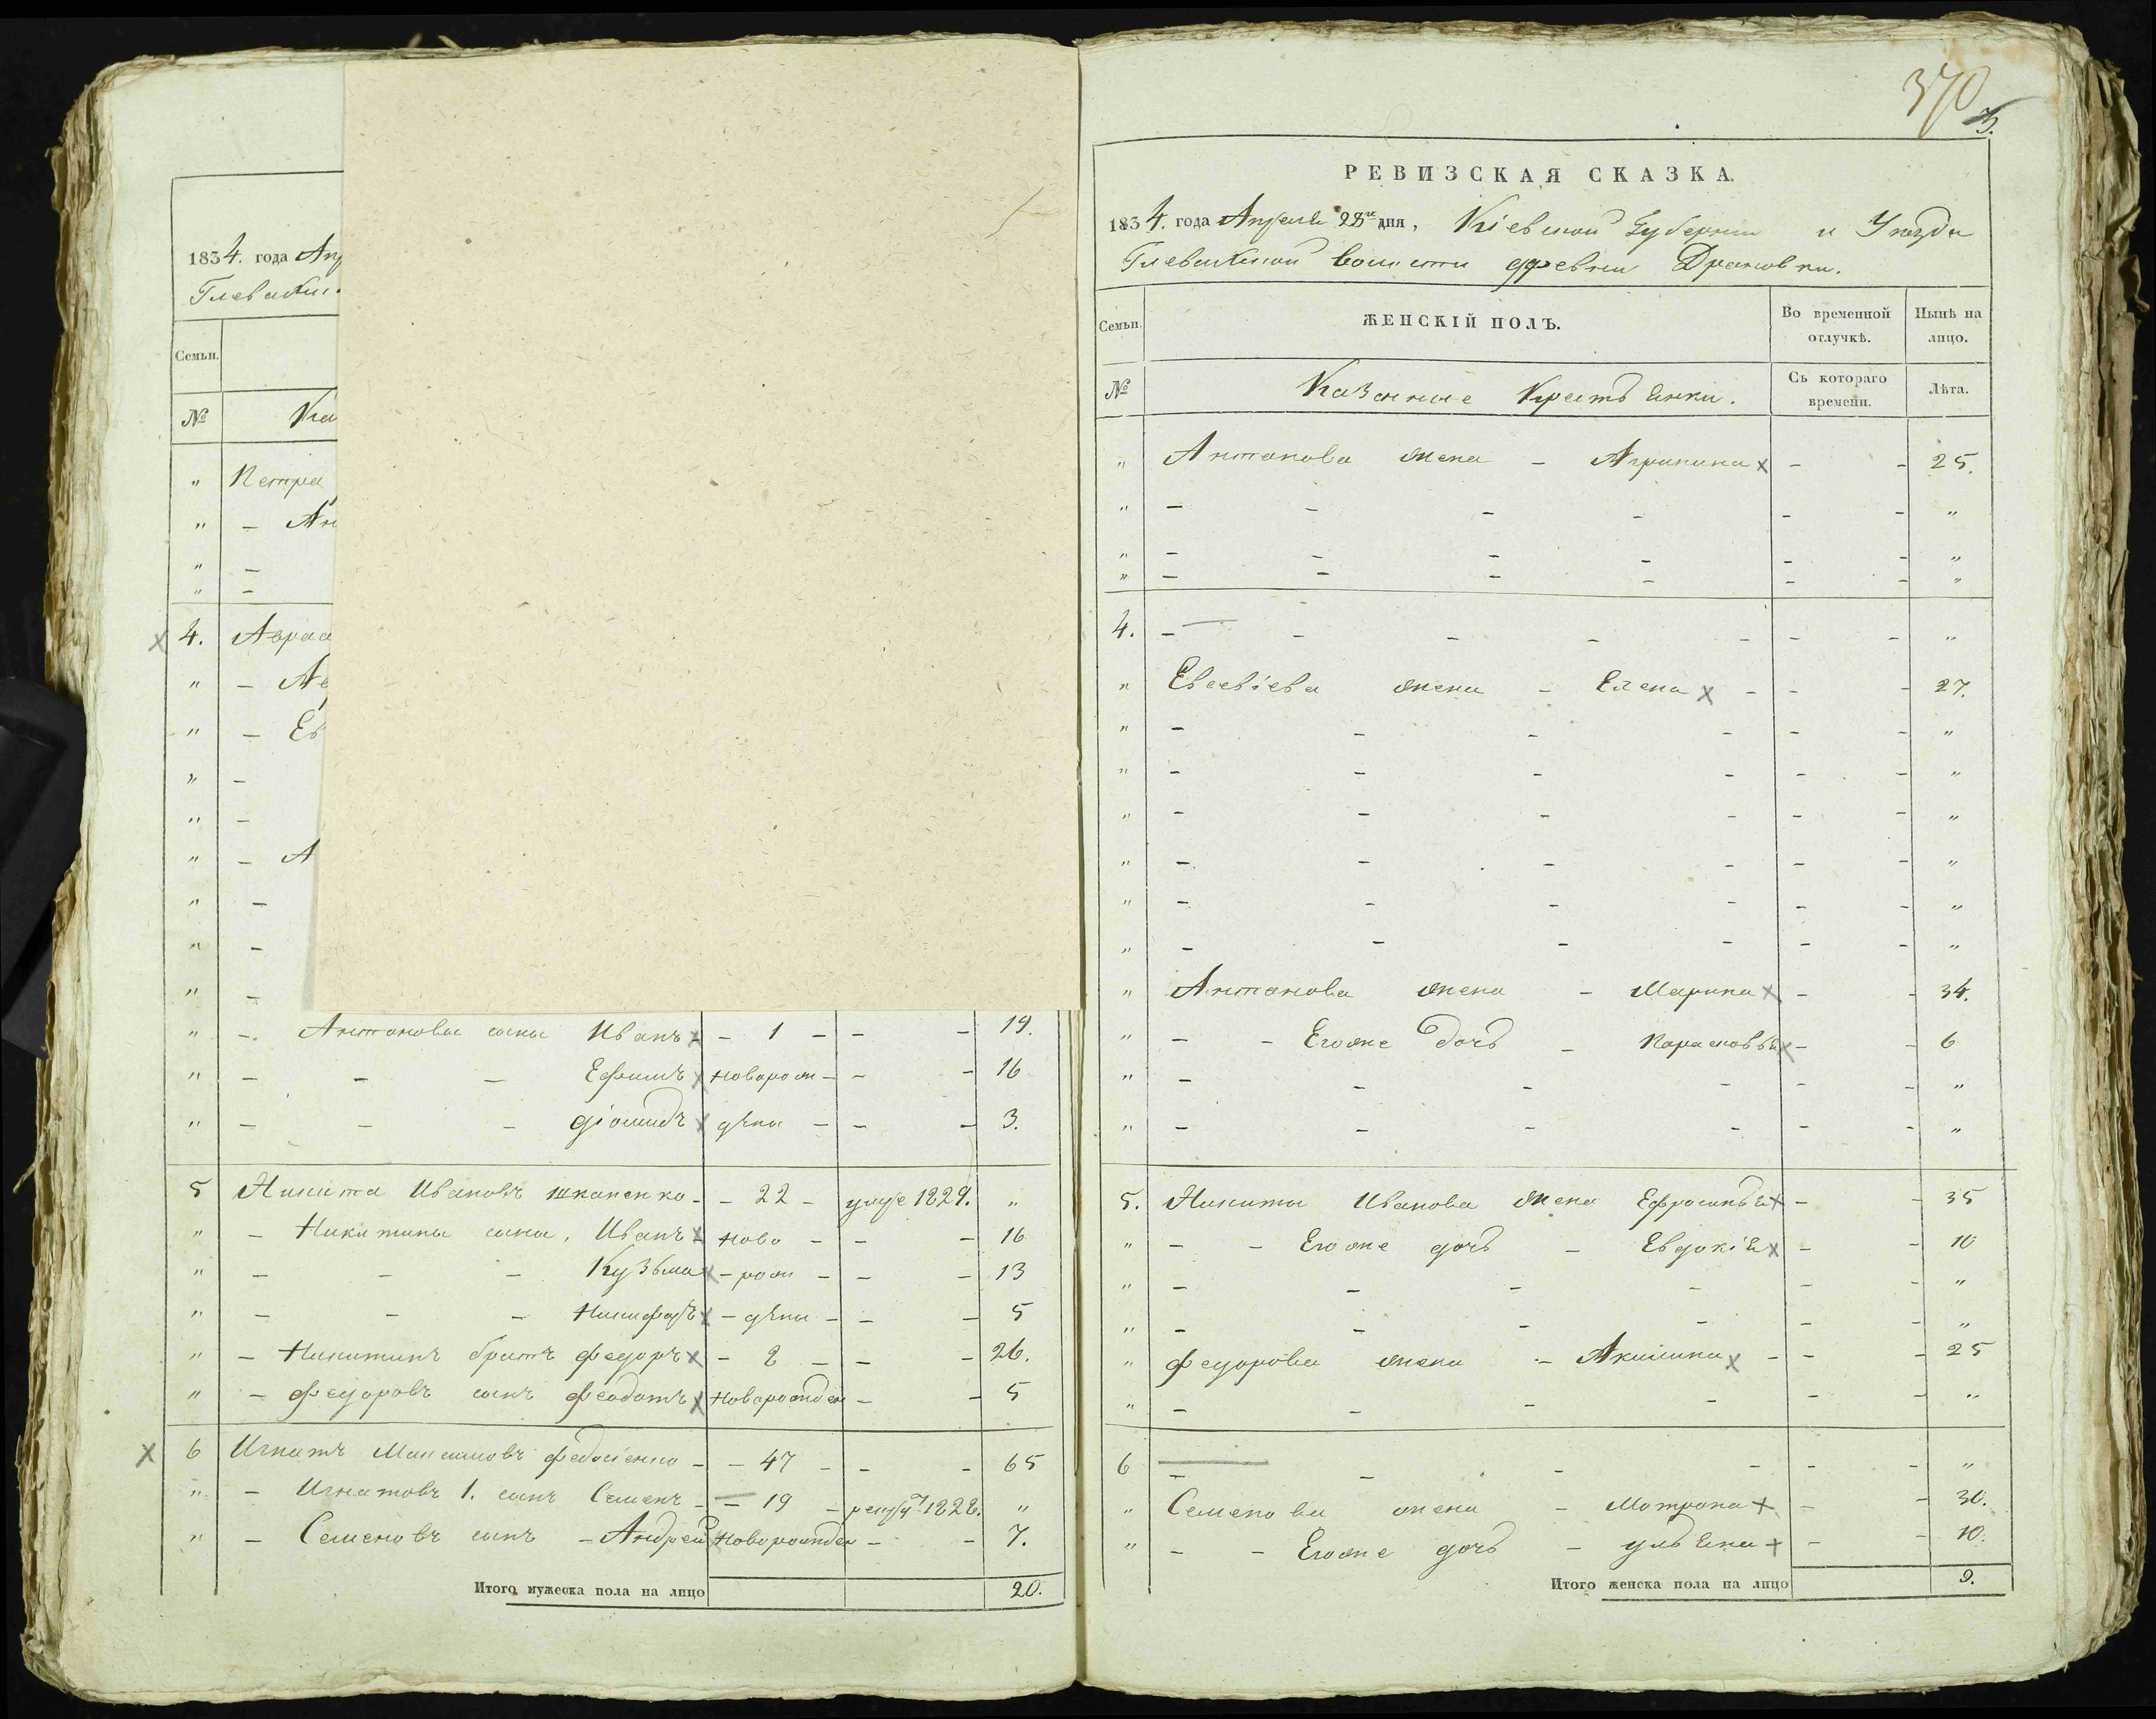 1834. года Апр
Глевахи
Семьи.
№ Ка
" Петра
" - Ан
" -
" -
4. Авраа
" - Ав
" - Ев
" -
" -
" - А
" -
" -
" -
" - Антоновы сыны Иванъ - 1 - - - 19.
" - - - Ефимъ новорож - - - 16
" - - - Діомидъ дены - - - 3.
5 Никита Ивановъ Шкапенко - - 22 - умре 1829. "
" - Никитины сыны, Иванъ ново - - - 16
" - - - Кузьма - рож - - - 13
" - - - Никифоръ - дены - - - 5
" - Никитинъ братъ Федоръ - 8 - - - 26.
" - Федоровъ сынъ Феодотъ новорожден - - 5
6 Игнатъ Максимовъ - 47 - - - 65
" - Игнатовъ 1. сынъ Семенъ - 19 - 1828. "
" - Семеновъ сынъ - Андрей новорожден - - 7.
Итого мужеска пола на лицо 20.
370
3.
РЕВИЗСКАЯ СКАЗКА.
1834. года Апреля 28го дня, Кіевской Губерніи и Уезда
Глевахской волости деревни
Семьи. ЖЕНСКІЙ ПОЛЪ. Во временной отлучкѣ. Нынѣ на лицо.
№ Казенные Крестьянки. Съ котораго времени. Лѣта.
" Антонова жена - Агрипина - - 25.
" - - - - - - "
" - - - - - - "
" - - - - - - "
4. - - - - - - - "
" Евсевіева жена - Елена - - - 27.
" - - - - - - "
" - - - - - - "
" - - - - - - "
" - - - - - - "
" - - - - - - "
" - - - - - - "
" Антонова жена - Марина - - 34.
" - - Егоже дочь - Парасковья - - 6
" - - - - - - "
" - - - - - - "
5. Никиты Иванова жена Ефросинья - - 35
" - - Егоже дочь - Евдокія - - 10
" - - - - - - "
" - - - - - - "
" Федорова жена - Акилина - - - 25
" - - - - - - "
6 - - - - - - "
" Семенова жена - Мотрона - - 30.
" - - Егоже дочь - Ульяна - - 10.
Итого женска пола на лицо 9.